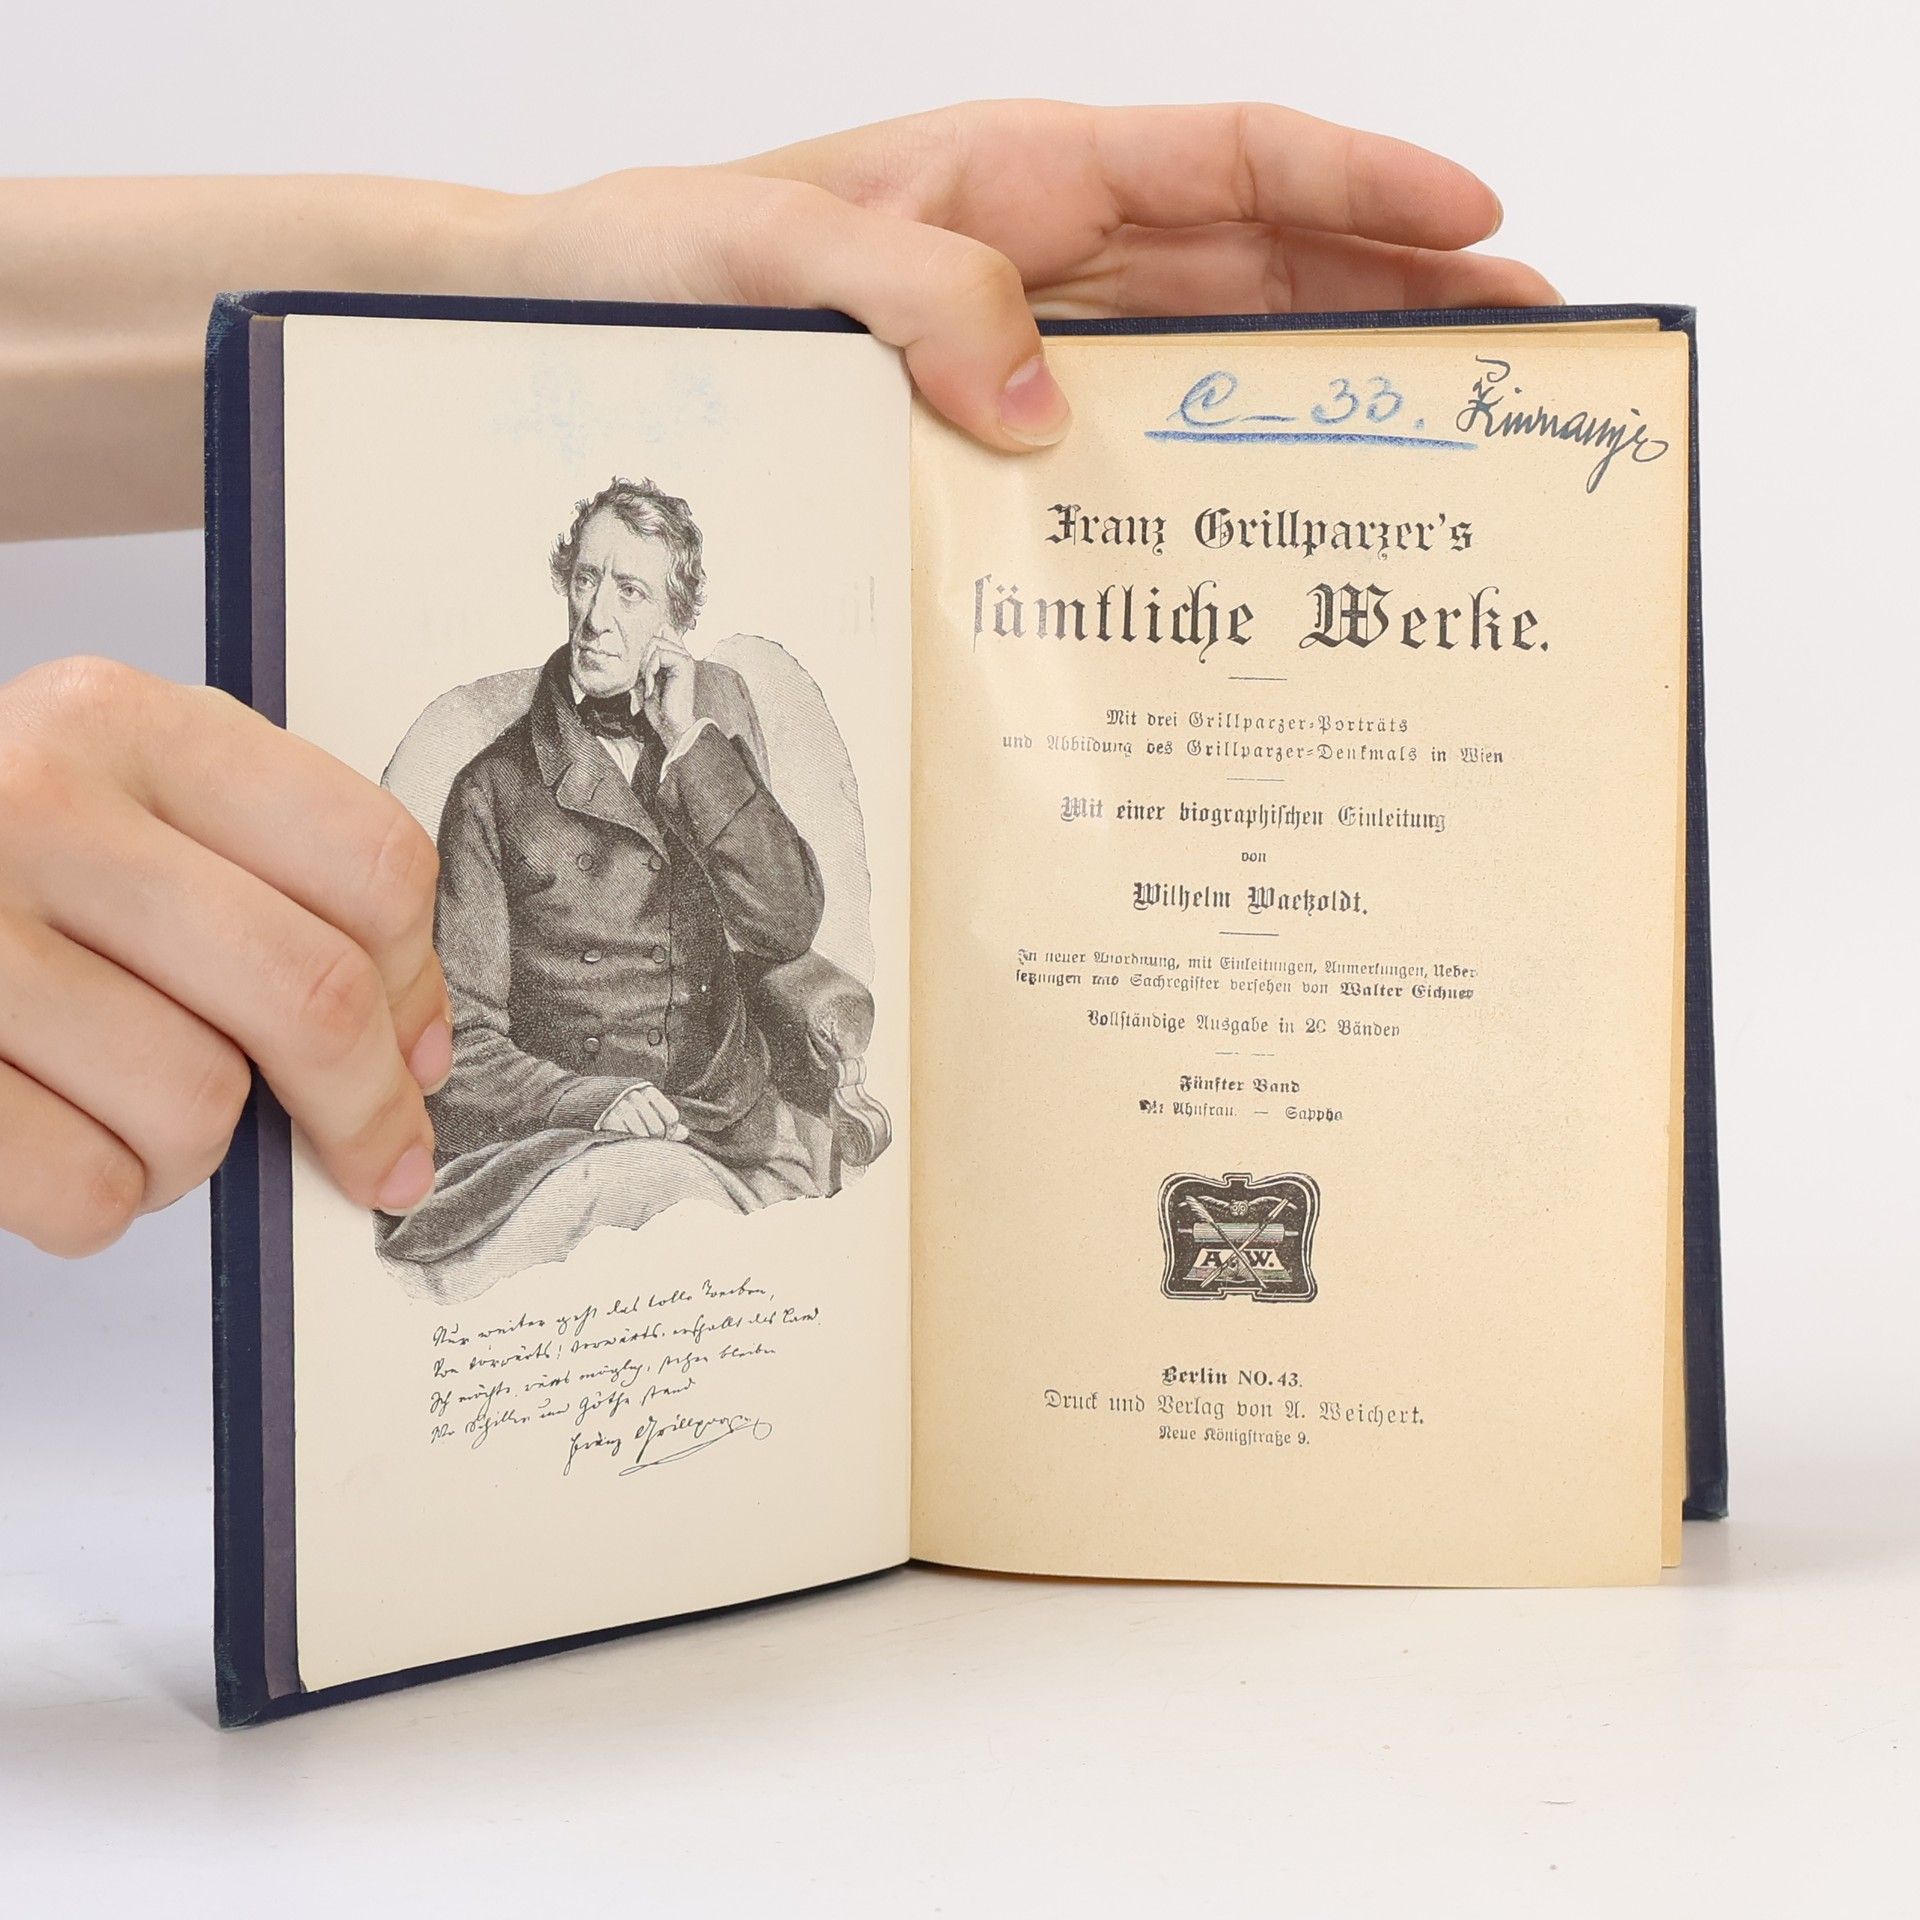 Nur weiter geht das tolle Treiben,
Von vorwärts! Vorwärts! erschallt das Land.
Ich möchte, wärs möglich, stehen bleiben
Wo Schiller und Göthe stand
Franz Grillparzer
C – 33.
Franz Grillparzer's
sämtliche Werke.
Mit drei Grillparzer-Porträts
und Abbildung des Grillparzer-Denkmals in Wien
Mit einer biographischen Einleitung
von
Wilhelm Waetzoldt.
In neuer Anordnung, mit Einleitungen, Anmerkungen, Ueber-
setzungen und Sachregister versehen von Walter Eichner
Vollständige Ausgabe in 20 Bänden
Fünfter Band
Die Ahnfrau. — Sappho
A. W.
Berlin NO. 43.
Druck und Verlag von A. Weichert.
Neue Königstraße 9.